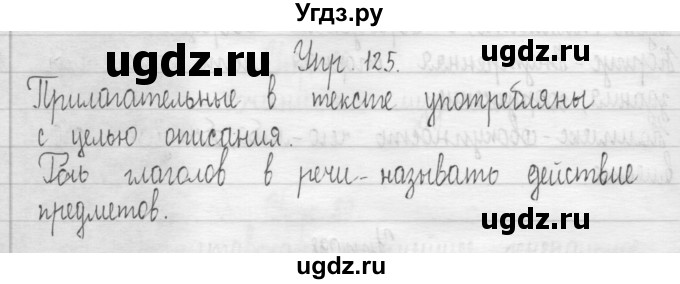 Угдз.ру
ugdz.ru ugdz.ru
Упр. 125.
Прилагательные в тексте употребляны
с целью описания.
ugdz.ru
Роль глаголов в речи - называть действие
предметов.
ugdz.ru ugdz.ru
ugdz.ru